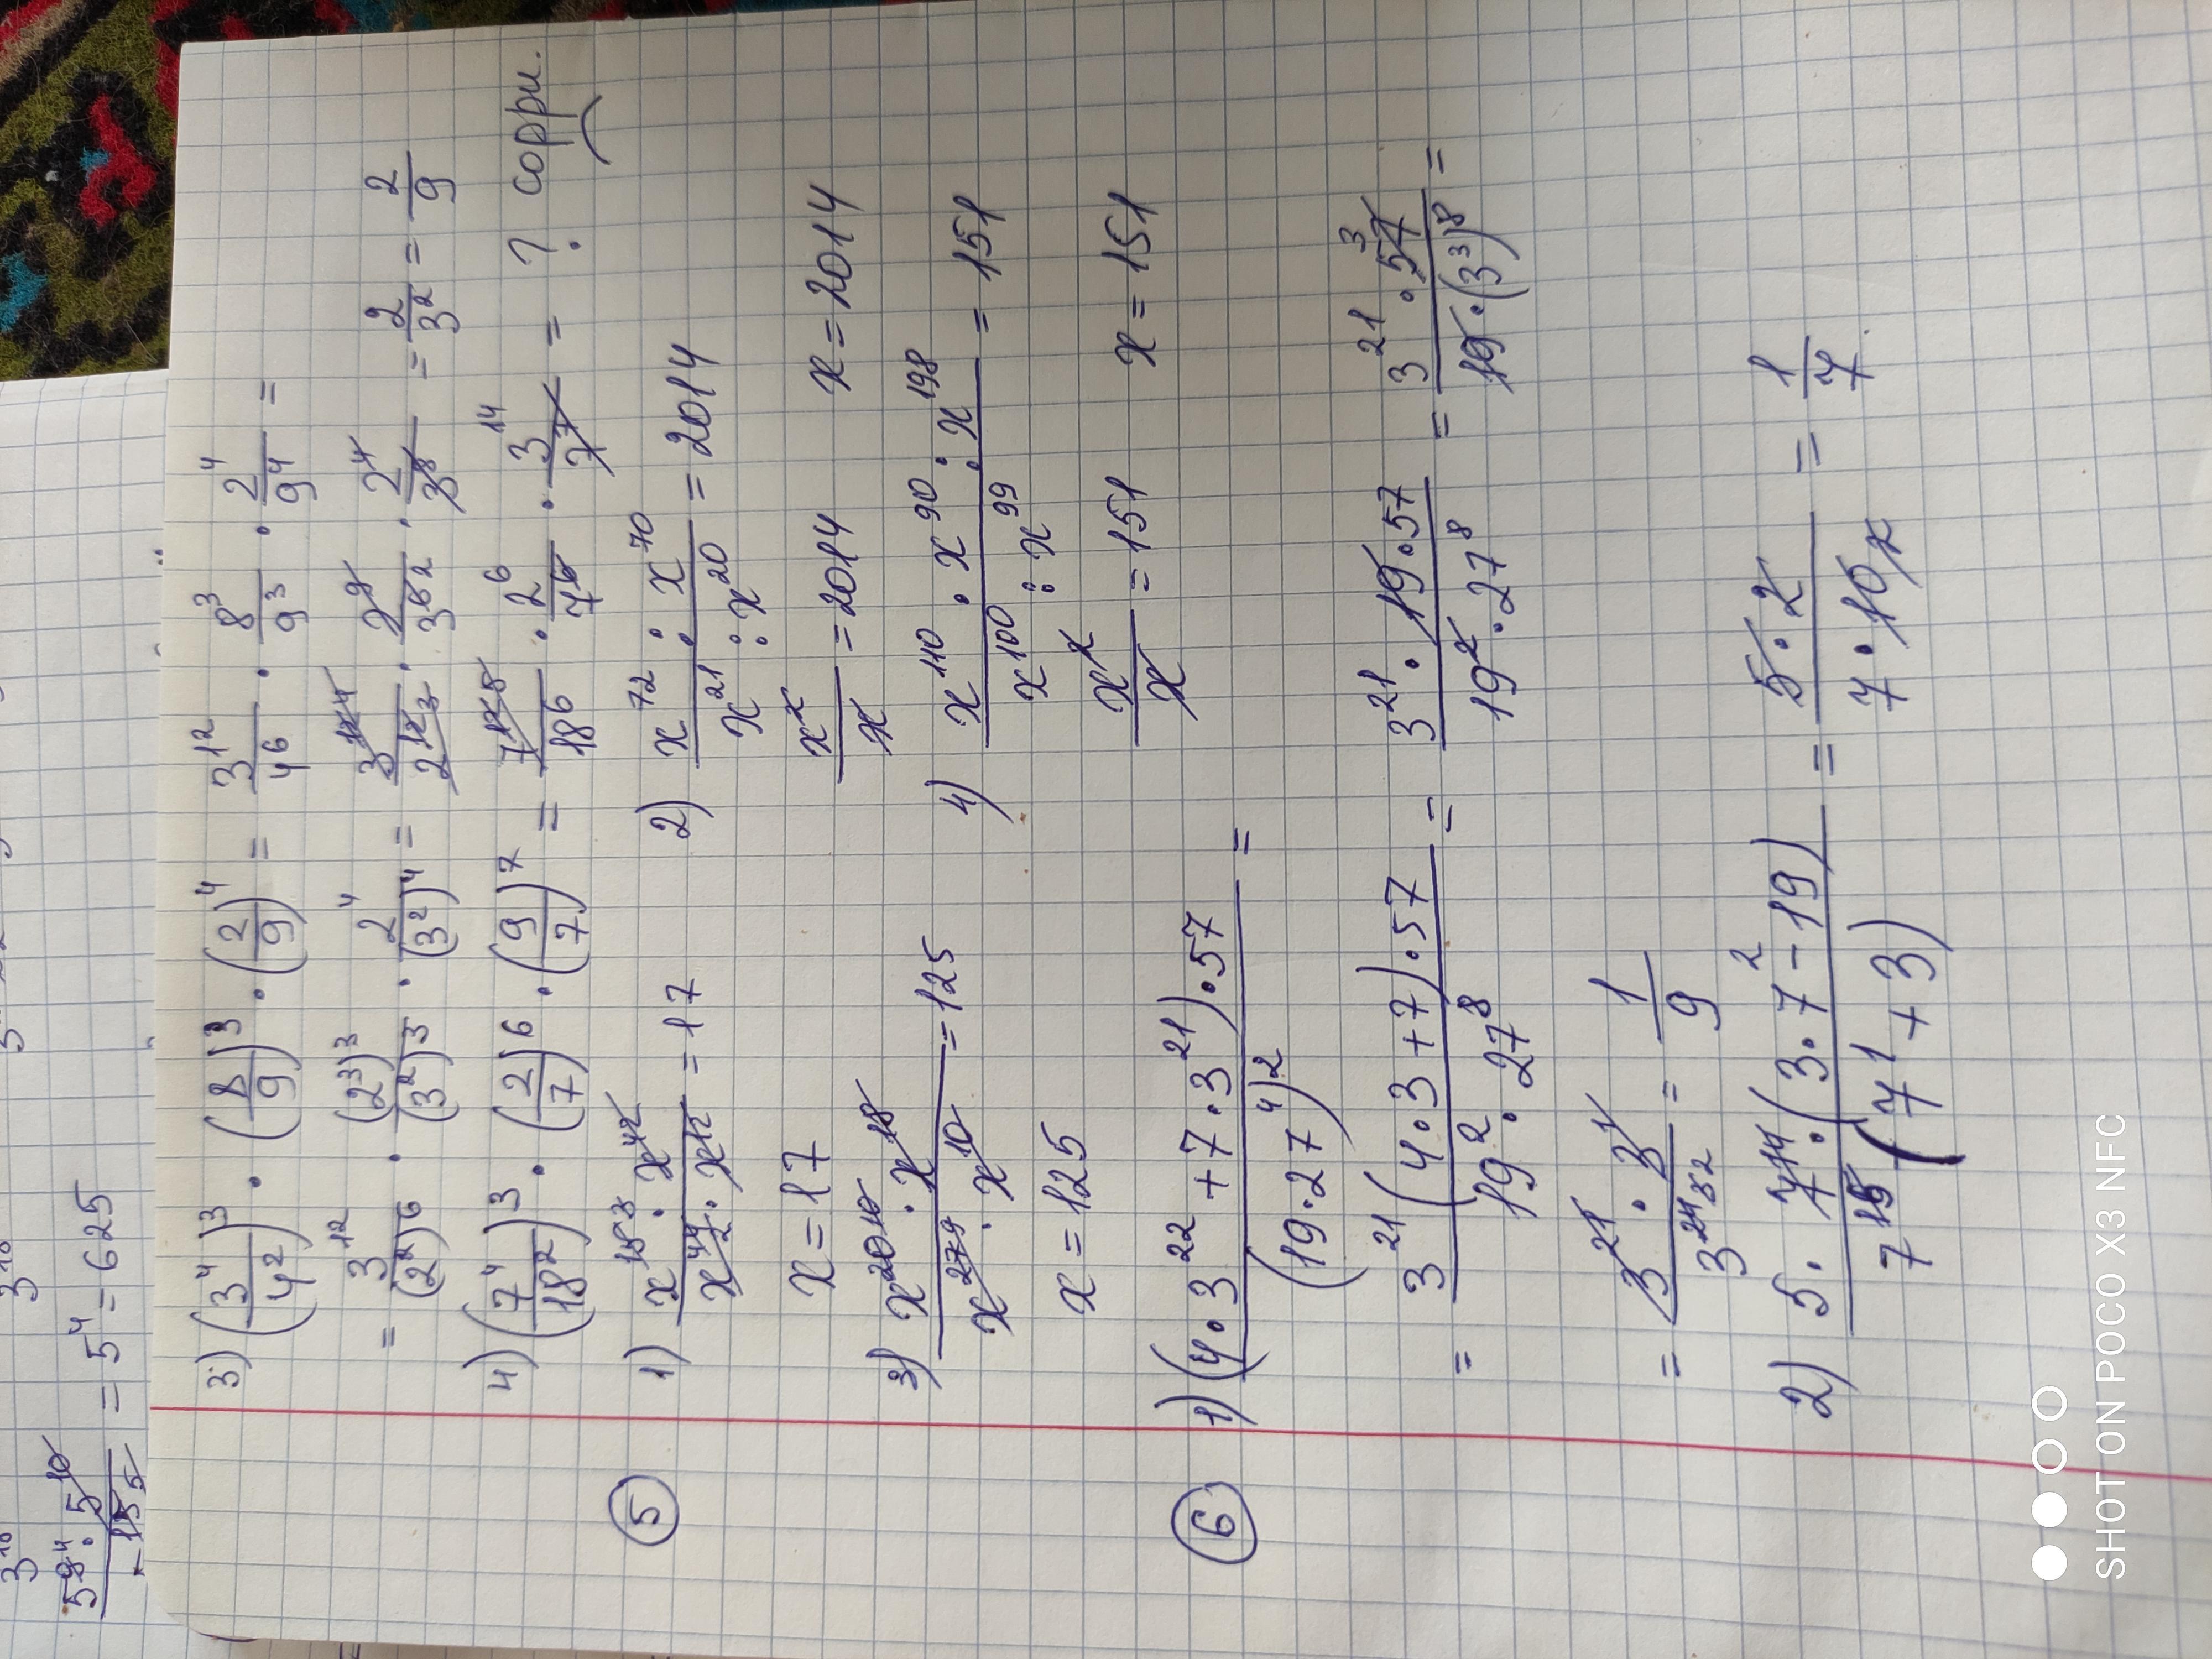 3^18 3^18
5^8^4 · 5^10 / 15 5 = 5^4 = 625
3) (3^4/4^2)^3 · (8/9)^3 · (2/9)^4 = 3^12/4^6 · 8^3/9^3 · 2^4/9^4 =
= 3^12/(2^2)^6 · (2^3)^3/(3^2)^3 · 2^4/(3^2)^4 = 3^12 4/2^12 3 · 2^9/3^6 2 · 2^4/3^8 = 2/3^2 = 2/9
4) (7^4/18^2)^3 · (2/7)^6 · (9/7)^7 = 7^12 5/18^6 · 2^6/7^6 · 3^14/7^7 = ? сорри.
5
1) x^18 3 · x^42 / x^44 2 · x^12 = 17
2) x^72 : x^70 / x^21 : x^20 = 2014
x = 17
x^2/x = 2014 x = 2014
3) x^20 10 · x^18 / x^27 9 · x^10 = 125
4) x^110 · x^90 : x^198 / x^100 : x^99 = 151
x = 125
x^2/x = 151 x = 151
6
1) (4 · 3^22 + 7 · 3^21) · 57 / (19 · 27^4)^2 =
= 3^21 (4 · 3 + 7) · 57 / 19^2 · 27^8 = 3^21 · 19 · 57 / 19^2 · 27^8 = 3^21 · 57 3 / 19 · (3^3)^8 =
= 3^21 · 3^1 / 3^24 3 2 = 1/9
2) 5 · 7^14 · (3 · 7^2 - 19) / 7^15 (7^1 + 3) = 5 · 2 / 7 · 10 2 = 1/7
SHOT ON POCO X3 NFC